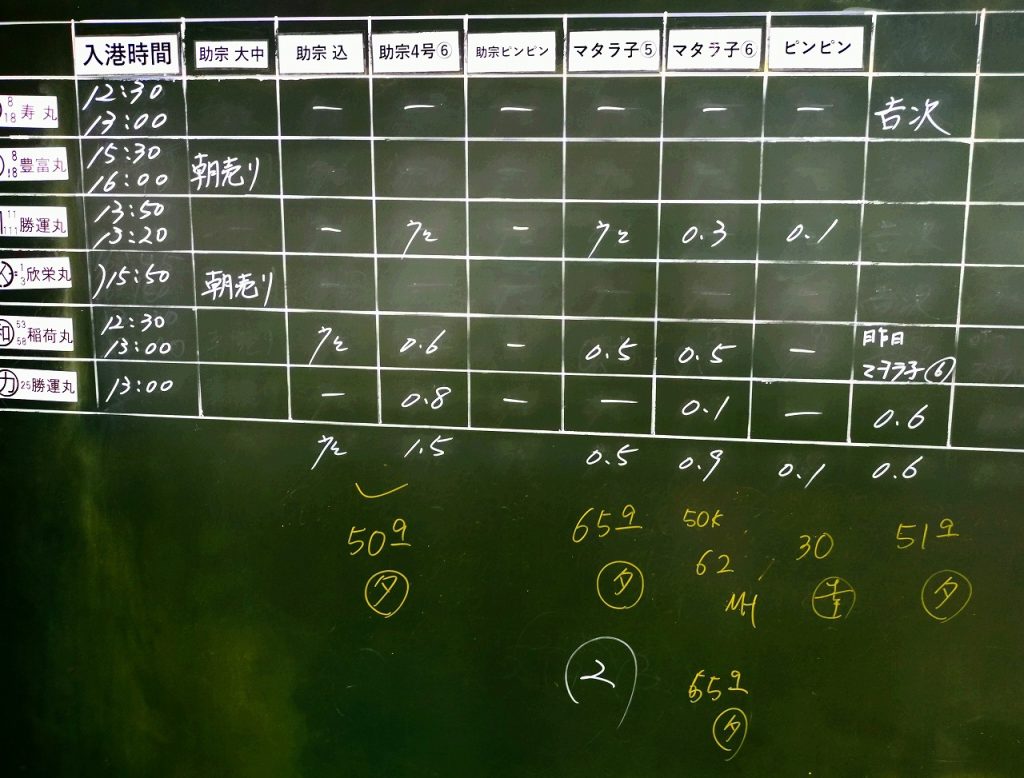 入港時間 助宗 大中 助宗 込 助宗4号⑥ 助宗ピンピン マタラ子⑤ マタラ子⑥ ピンピン
8 18 寿丸 12:30 13:00 — — — — — — 吉次
8 18 豊富丸 15:30 16:00 朝売り
11 111 勝運丸 13:50 13:20 — — 0.3 0.1
1 3 欣栄丸 15:50 朝売り
和 53 58 稲荷丸 12:30 13:00 0.6 — 0.5 0.5 — 昨日 マタラ子⑥
カ 25 勝運丸 13:00 — 0.8 — — 0.1 — 0.6
1.5 0.5 0.9 0.1 0.6
50 65 50K 30 51
タ タ 62 タ
2 65
タ